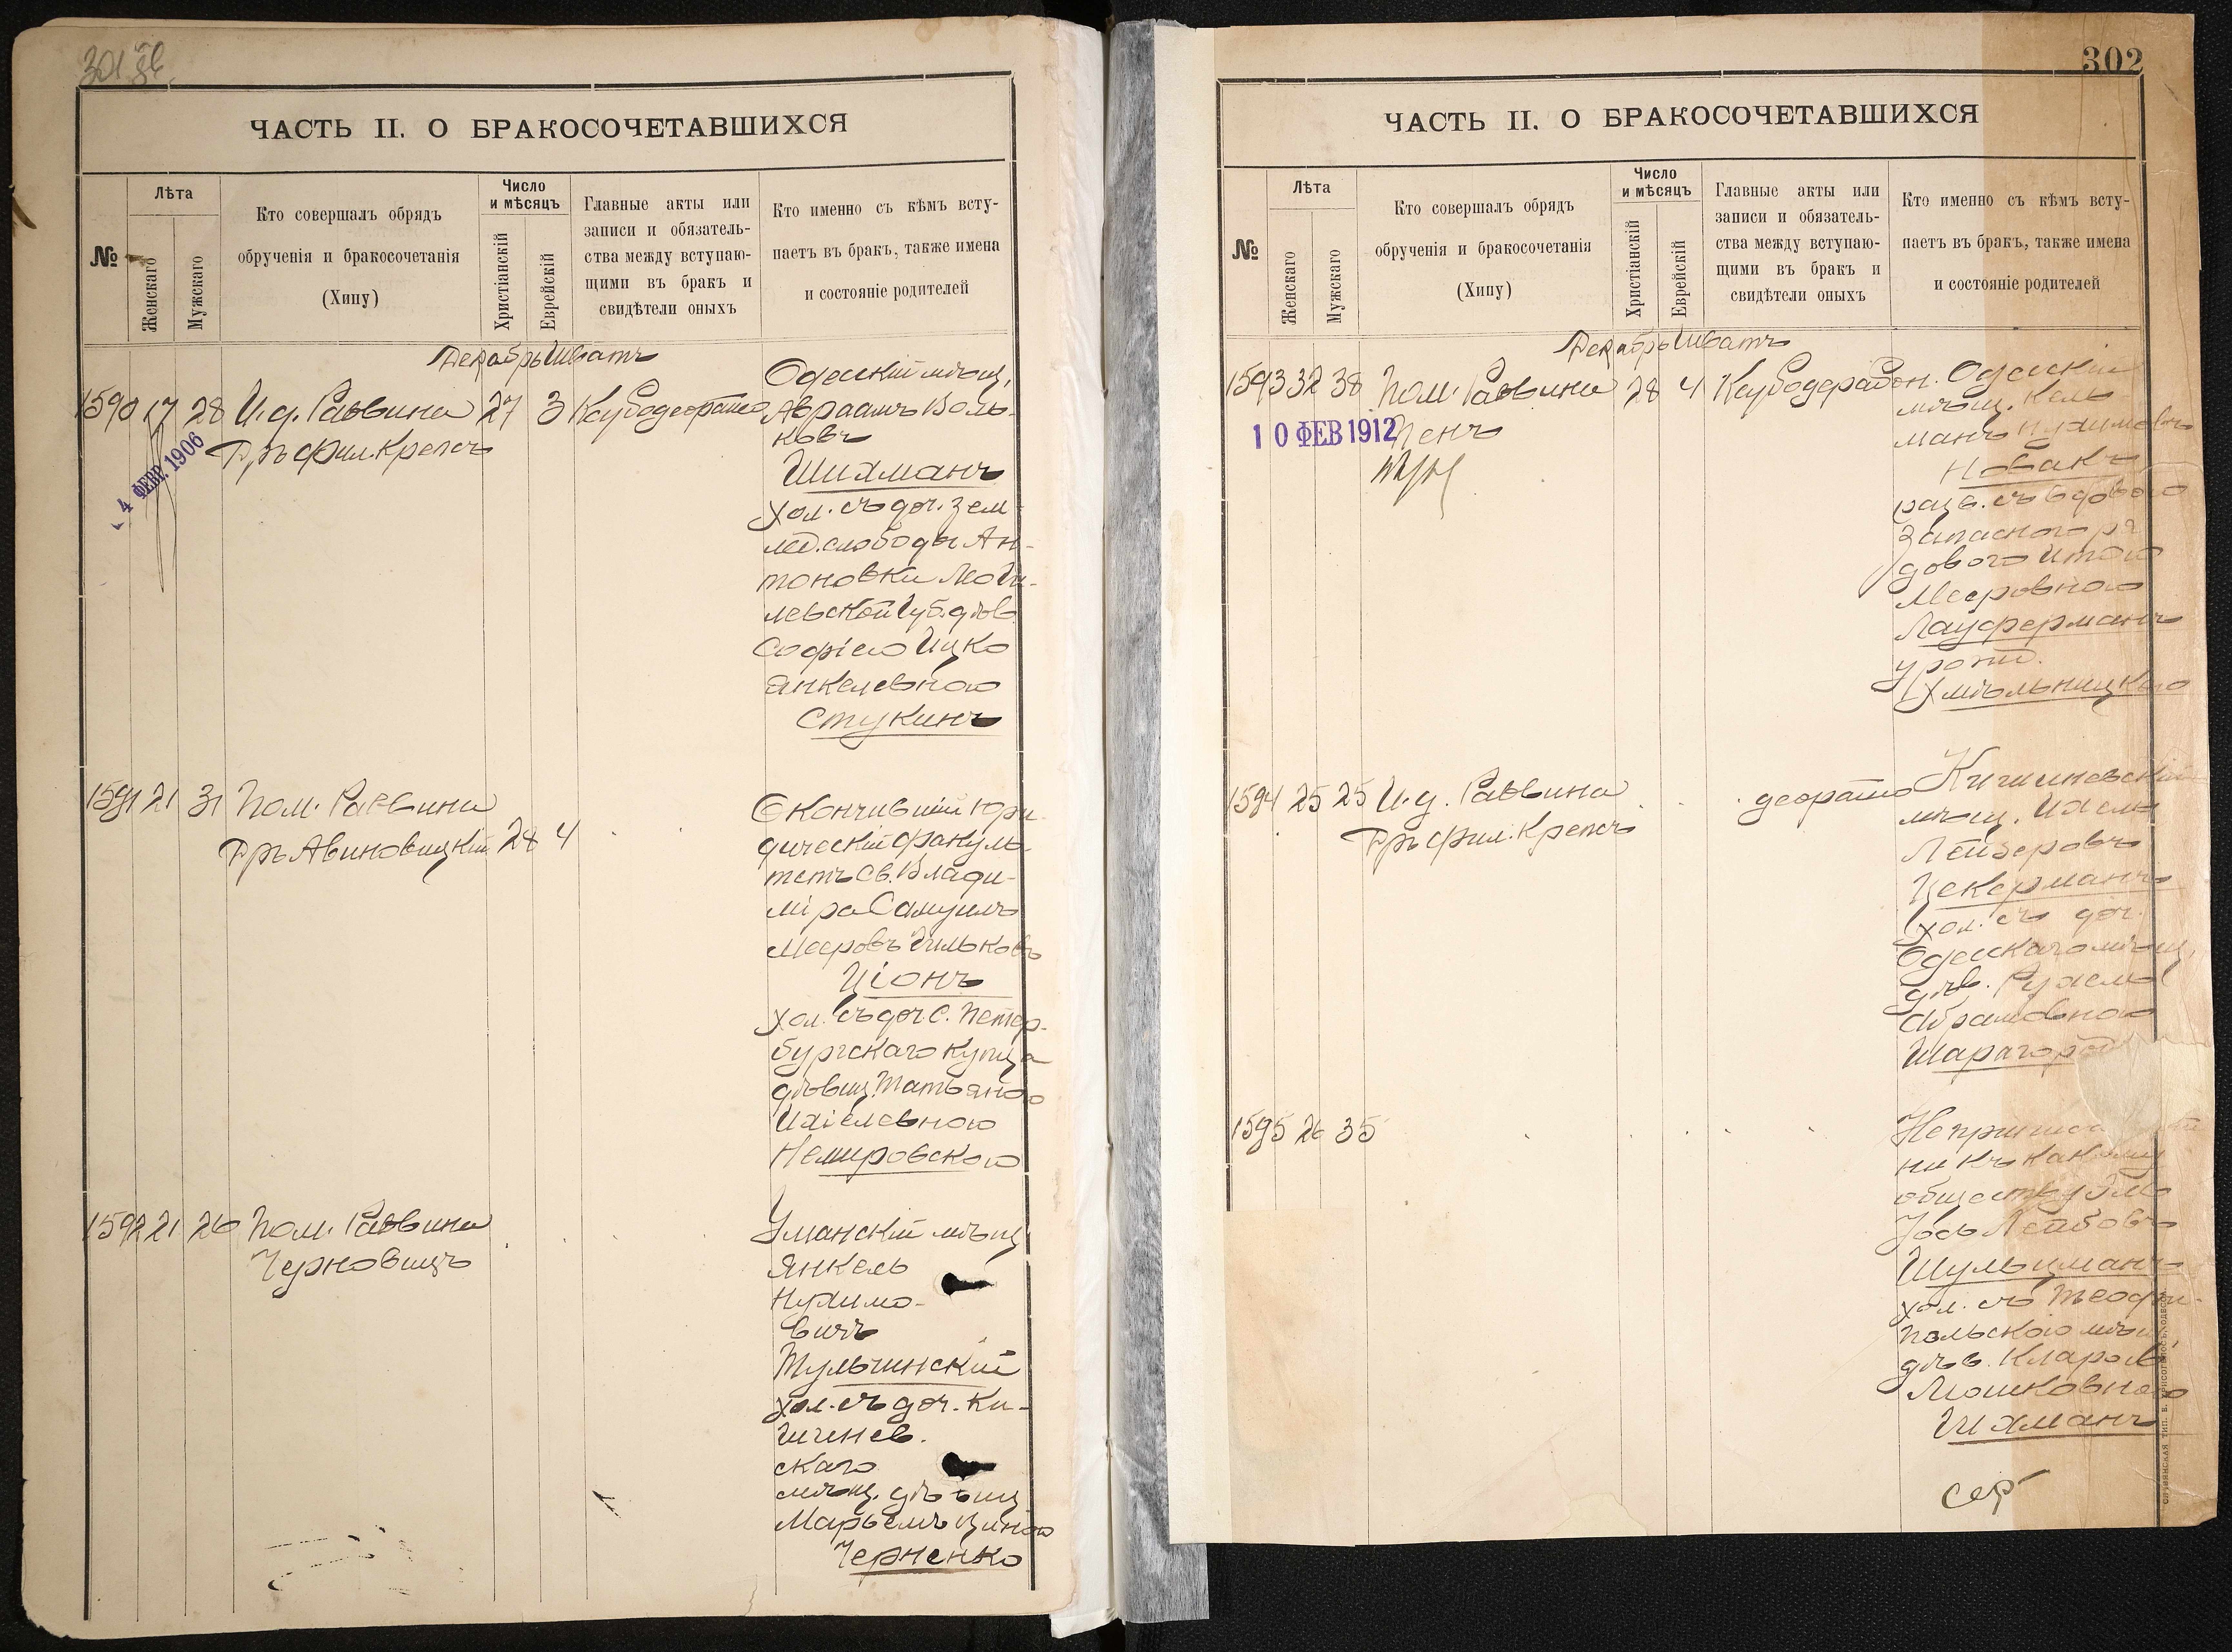 301 об.
ЧАСТЬ II. О БРАКОСОЧЕТАВШИХСЯ
№
Лѣта
Женскаго
Мужскаго
Кто совершалъ обрядъ
обрученія и бракосочетанія
(Хипу)
Число
и мѣсяцъ
Христіанскій
Еврейскій
Главные акты или
записи и обязатель-
ства между вступаю-
щими въ бракъ и
свидѣтели оныхъ
Кто именно съ кѣмъ всту-
паетъ въ бракъ, также имена
и состояніе родителей
Декабрь Шватъ
1590 17 28 И.д. Раввина 27 3
Дръ фил. Крепсъ
4 ФЕВР. 1906
Одесскій мѣщ.
Авраамъ Воль-
ковъ
Шихманъ
хол. съ доч. зем-
лед. слободы Ан-
тоновки Моги-
левской губ. дѣв.
Софіею Ицко
Янкелевною
Стукинъ
1591 21 31 Пом. Раввина
Дръ Авиновицкій 28 4
Окончившій юри-
дическій факуль-
тетъ Св. Влади-
міра Самуилъ
Мееровъ Гильковъ
Ціонъ
хол. съ доч. С. Петер-
бургскаго купца
дѣвиц. Татьяною
Ихіелевною
Немировскою
1592 21 26 Пом. Раввина
Черновицъ
Уманскій мѣщ.
Янкель
Нухимо-
вичъ
Тульчинскій
хол. съ доч. Ки-
шинев.
скаго
мѣщ. дѣвиц
Марьемъ Циною
Черненко
302
ЧАСТЬ II. О БРАКОСОЧЕТАВШИХСЯ
№
Лѣта
Женскаго
Мужскаго
Кто совершалъ обрядъ
обрученія и бракосочетанія
(Хипу)
Число
и мѣсяцъ
Христіанскій
Еврейскій
Главные акты или
записи и обязатель-
ства между вступаю-
щими въ бракъ и
свидѣтели оныхъ
Кто именно съ кѣмъ всту-
паетъ въ бракъ, также имена
и состояніе родителей
Декабрь Шватъ
1593 32 38 Пом. Раввина 28 4
Пенъ
10 ФЕВ 1912
Одесскій
мѣщ. Кель-
манъ Нухимовъ
Новакъ
разв. съ вдовою
запасного ря-
дового Итою
Мееровною
Лауферманъ
урожд.
Хмѣльницкою
1594 25 25 И.д. Раввина
Дръ фил. Крепсъ
Кишиневскій
мѣщ. Ихель
Лейзеровъ
Цекерманъ
хол. съ доч.
Одесскаго мѣщ.
дѣв. Рухлею
Абрамовною
Шарагород
1595 26 35
ни къ какому
обществу
Іось Лейбовъ
Шульцманъ
хол. съ Теофи-
польскою мѣщ.
дѣв. Кларою
Мошковною
Шихманъ